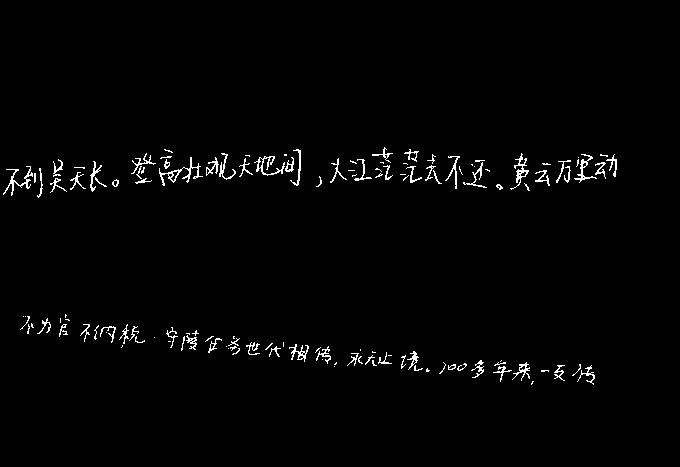 不到吴天长。登高壮观天地间，大江茫茫去不还。黄云万里动
不为官不纳税.守陵任务世代相传，永无止境。700多年来，一支传